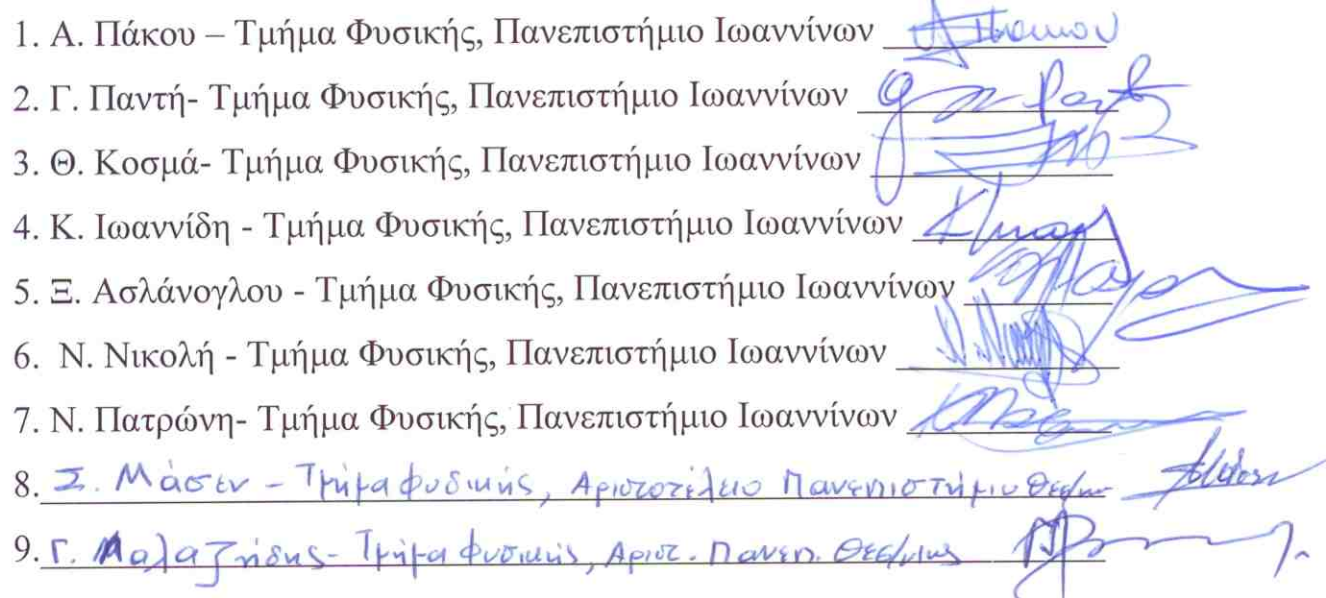 1. Α. Πάκου – Τμήμα Φυσικής, Πανεπιστήμιο Ιωαννίνων
2. Γ. Παντή- Τμήμα Φυσικής, Πανεπιστήμιο Ιωαννίνων
3. Θ. Κοσμά- Τμήμα Φυσικής, Πανεπιστήμιο Ιωαννίνων
4. Κ. Ιωαννίδη - Τμήμα Φυσικής, Πανεπιστήμιο Ιωαννίνων
5. Ξ. Ασλάνογλου - Τμήμα Φυσικής, Πανεπιστήμιο Ιωαννίνων
6. Ν. Νικολή - Τμήμα Φυσικής, Πανεπιστήμιο Ιωαννίνων
7. Ν. Πατρώνη- Τμήμα Φυσικής, Πανεπιστήμιο Ιωαννίνων
8. Σ. Μάσεν - Τμήμα Φυσικής, Αριστοτέλειο Πανεπιστήμιο
9. Γ. Λαλαζήσης - Τμήμα Φυσικής, Αριστ. Πανεπ. Θεσ/νικης